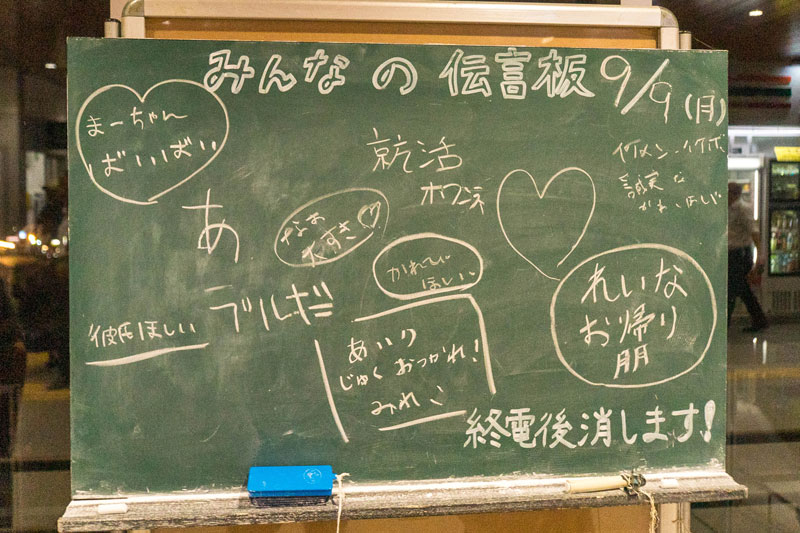 みんなの伝言板
9/9(月)
まーちゃん
ばいばい
就活
ホワンネ
イケメン・イケボ
誠実な
あ
なお
大すき
かれぴ
ほしい
れいな
お帰り
朋
彼氏ほしい
ブルガ
あいり
じゅく おつかれ!
みれこ
終電後消します!